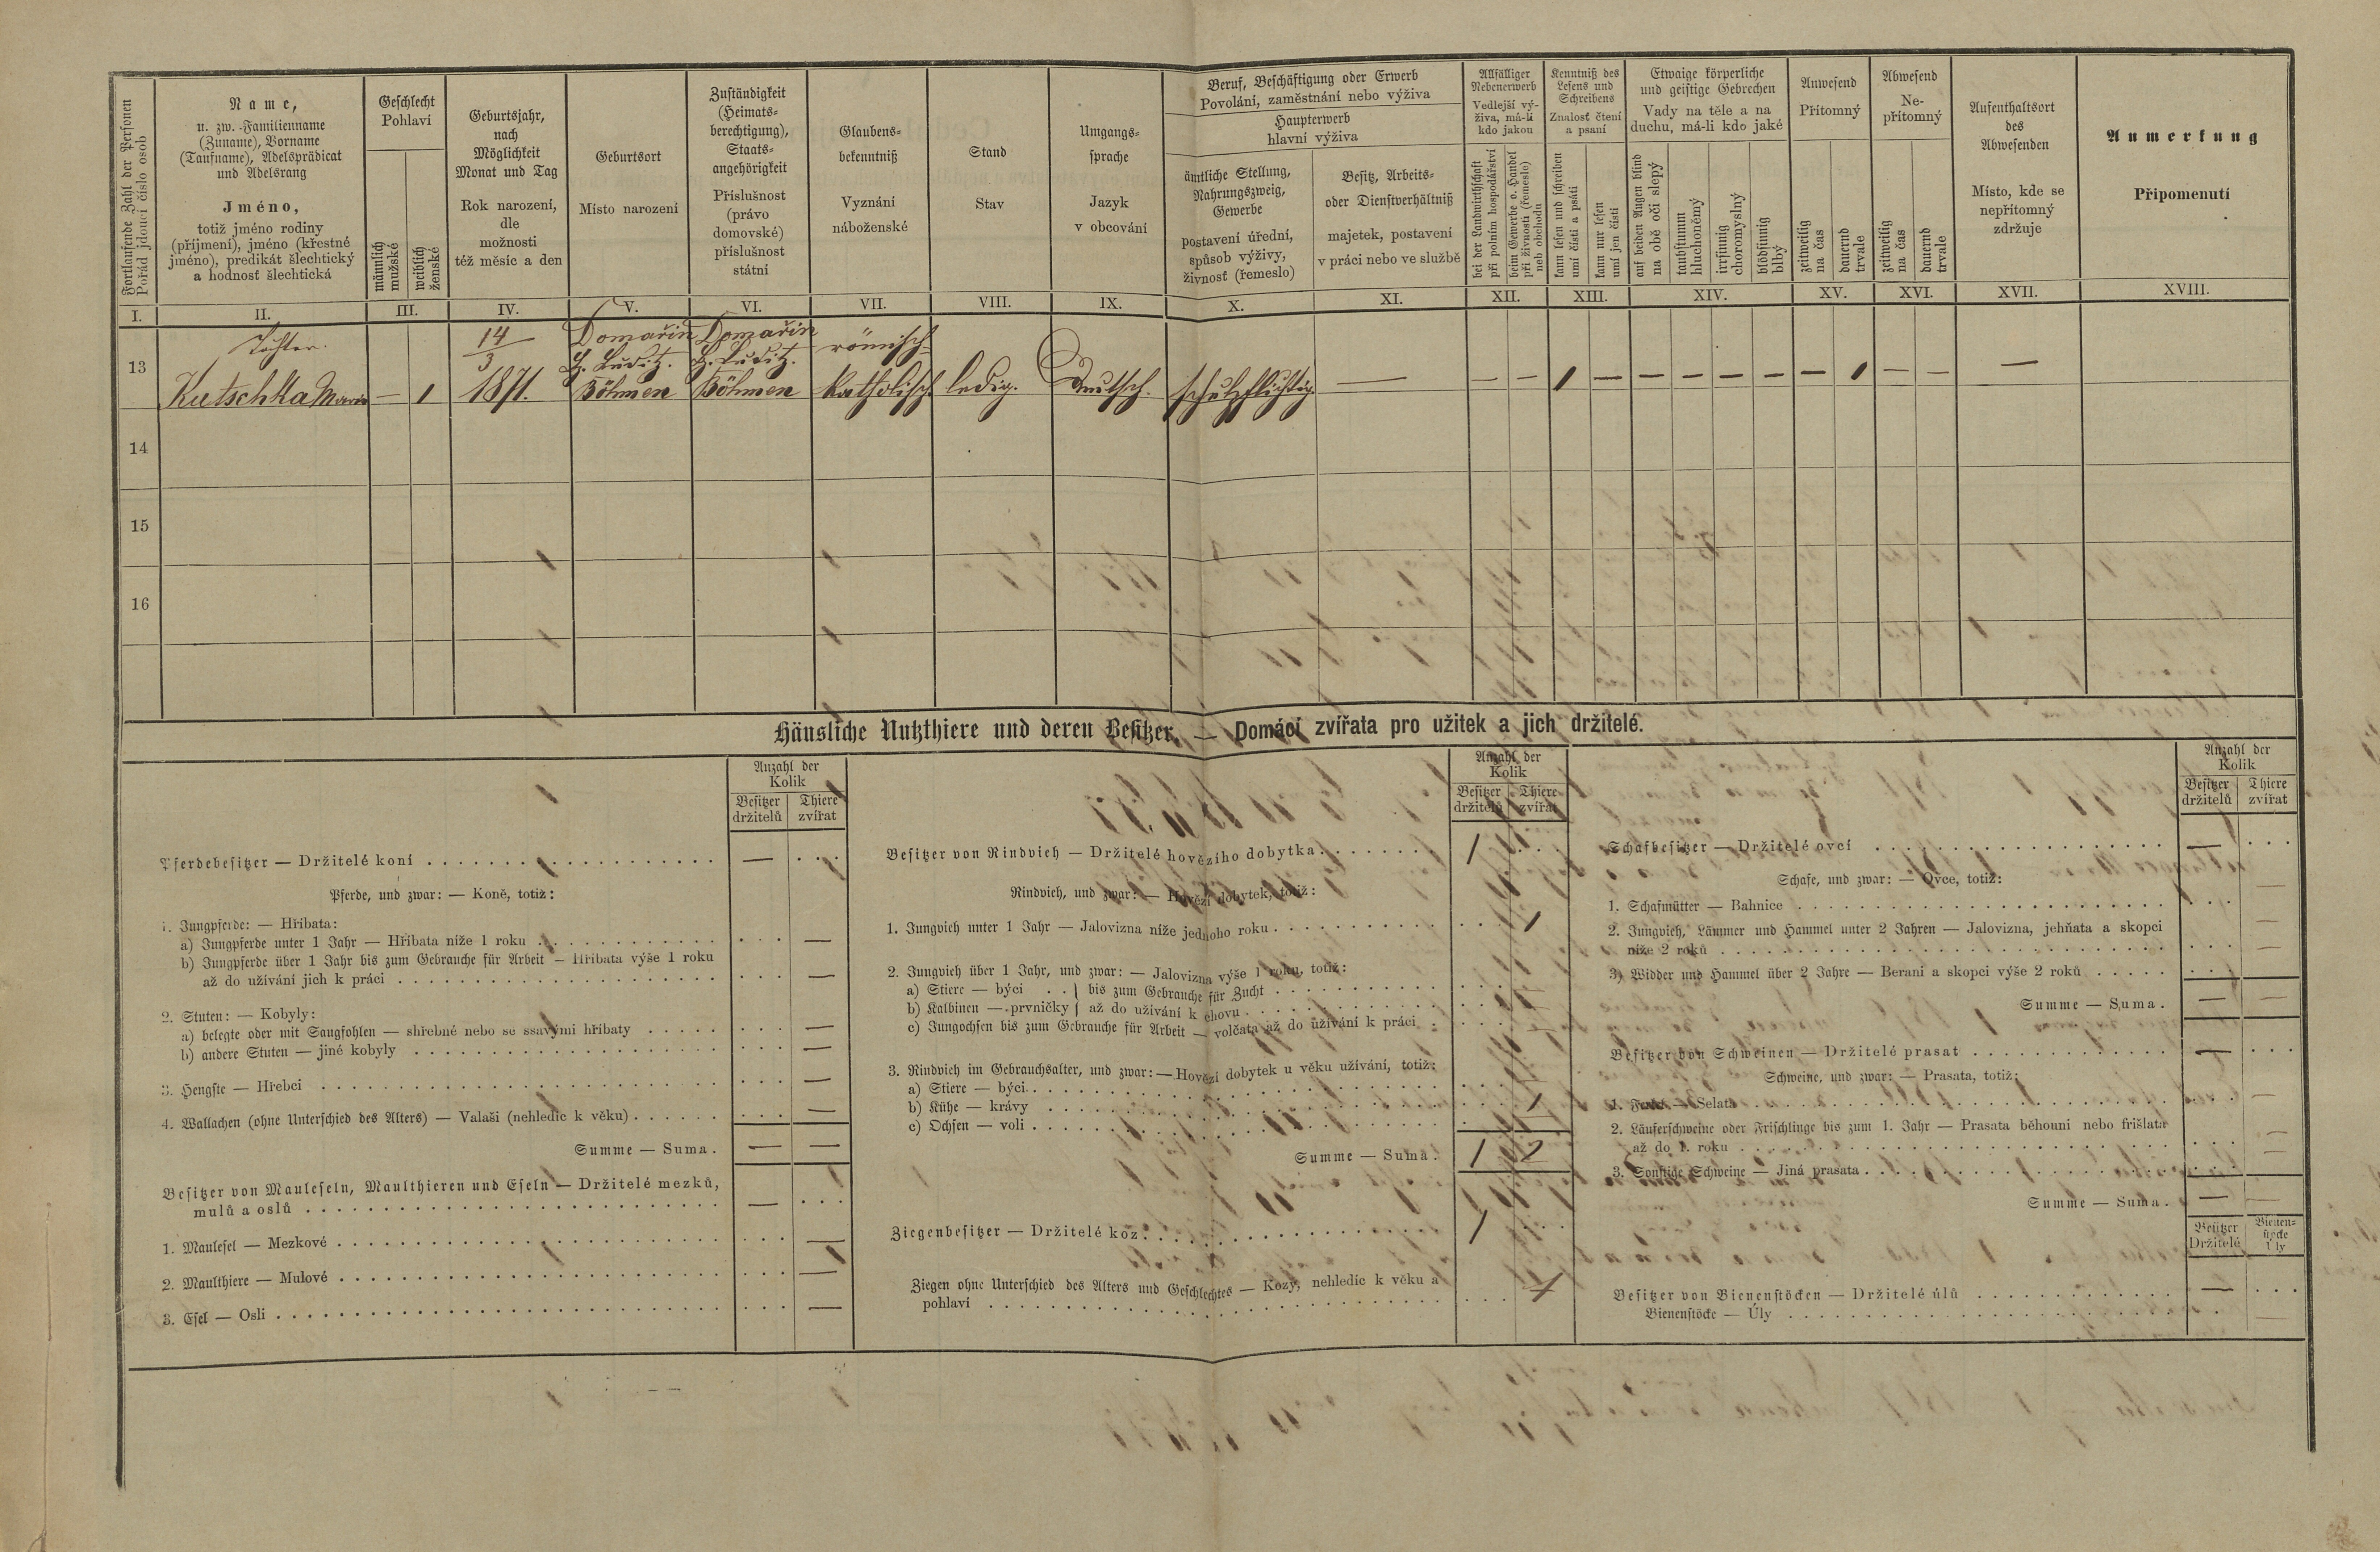 Fortlaufende Zahl der Personen
Pořad jdoucí číslo osob
Name,
u. zw. Familienname
(Zuname), Vorname
(Taufname), Adelsprädicat
und Adelsrang
Jméno,
totiž jméno rodiny
(příjmení), jméno (křestné
jméno), predikát šlechtický
a hodnosť šlechtická
Geschlecht
Pohlaví
männlich
mužské
weiblich
ženské
Geburtsjahr,
nach
Möglichkeit
Monat und Tag
Rok narození,
dle
možnosti
též měsíc a den
Geburtsort
Místo narození
Zuständigkeit
(Heimats-
berechtigung),
Staats-
angehörigkeit
Příslušnost
(právo
domovské)
příslušnost
státní
Glaubens-
bekenntniß
Vyznání
náboženské
Stand
Stav
Umgangs-
sprache
Jazyk
v obcování
Beruf, Beschäftigung oder Erwerb
Povolání, zaměstnání nebo výživa
Haupterwerb
hlavní výživa
ämtliche Stellung,
Nahrungszweig,
Gewerbe
postavení úřední,
spůsob výživy,
živnosť (řemeslo)
Besitz, Arbeits-
oder Dienstverhältniß
majetek, postavení
v práci nebo ve službě
Allfälliger
Nebenerwerb
Vedlejší vý-
živa, má-li
kdo jakou
bei der Landwirthschaft
při polním hospodářství
beim Gewerbe o. Handel
při živnosti (řemeslo)
neb obchodu
Kenntniß des
Lesens und
Schreibens
Znalosť čtení
a psaní
kann lesen und schreiben
umí čísti a psáti
kann nur lesen
umí jen čísti
Etwaige körperliche
und geistige Gebrechen
Vady na těle a na
duchu, má-li kdo jaké
auf beiden Augen blind
na obě oči slepý
taubstumm
hluchoněmý
irrsinnig
choromyslný
blödsinnig
blbý
Anwesend
Přítomný
zeitweilig
na čas
dauernd
trvale
Abwesend
Ne-
přítomný
zeitweilig
na čas
dauernd
trvale
Aufenthaltsort
des
Abwesenden
Místo, kde se
nepřítomný
zdržuje
Anmerkung
Připomenutí
I. II. III. IV. V. VI. VII. VIII. IX. X. XI. XII. XIII. XIV. XV. XVI. XVII. XVIII.
Tochter. 14 Domařin Domařin römisch-
13 3 B. Luditz. B. Luditz.
Kutschka Maria — 1 1871. Böhmen Böhmen katholisch. ledig. Deutsch. schulpflichtig — — — 1 — — — — — — 1 — — —
14
15
16
Häusliche Nutzthiere und deren Besitzer. — Domácí zvířata pro užitek a jich držitelé.
Anzahl der
Kolik
Besitzer Thiere
držitelů zvířat
Pferdebesitzer — Držitelé koní — . . .
Pferde, und zwar: — Koně, totiž:
1. Jungpferde: — Hříbata:
a) Jungpferde unter 1 Jahr — Hříbata níže 1 roku . . . —
b) Jungpferde über 1 Jahr bis zum Gebrauche für Arbeit — Hříbata výše 1 roku
až do užívání jich k práci . . . —
2. Stuten: — Kobyly:
a) belegte oder mit Saugfohlen — shřebné nebo se ssavými hříbaty . . . —
b) andere Stuten — jiné kobyly . . . —
3. Hengste — Hřebci . . . —
4. Wallachen (ohne Unterschied des Alters) — Valaši (nehledíc k věku) . . . —
Summe — Suma. — —
Besitzer von Mauleseln, Maulthieren und Eseln — Držitelé mezků,
mulů a oslů — . . .
1. Maulesel — Mezkové . . . —
2. Maulthiere — Mulové . . . —
3. Esel — Osli . . . —
Anzahl der
Kolik
Besitzer Thiere
držitelů zvířat
Besitzer von Rindvieh — Držitelé hovězího dobytka 1 . . .
Rindvieh, und zwar: — Hovězí dobytek, totiž:
1. Jungvieh unter 1 Jahr — Jalovizna níže jednoho roku . . . 1
2. Jungvieh über 1 Jahr, und zwar: — Jalovizna výše 1 roku, totiž:
a) Stiere — býci . . } bis zum Gebrauche für Zucht . . . —
b) Kalbinen — prvničky } až do užívání k chovu . . . —
c) Jungochsen bis zum Gebrauche für Arbeit — volčata až do užívání k práci . . . —
3. Rindvieh im Gebrauchsalter, und zwar: — Hovězí dobytek u věku užívání, totiž:
a) Stiere — býci . . . —
b) Kühe — krávy . . . 1
c) Ochsen — voli . . . —
Summe — Suma. 1 2
Ziegenbesitzer — Držitelé koz 1 . . .
Ziegen ohne Unterschied des Alters und Geschlechtes — Kozy, nehledíc k věku a
pohlaví . . .
Anzahl der
Kolik
Besitzer Thiere
držitelů zvířat
Schafbesitzer — Držitelé ovcí — . . .
Schafe, und zwar: — Ovce, totiž:
1. Schafmütter — Bahnice . . . —
2. Jungvieh, Lämmer und Hammel unter 2 Jahren — Jalovizna, jehňata a skopci
níže 2 roků . . . —
3) Widder und Hammel über 2 Jahre — Berani a skopci výše 2 roků . . . —
Summe — Suma. — —
Besitzer von Schweinen — Držitelé prasat — . . .
Schweine, und zwar: — Prasata, totiž:
1. Ferkel — Selata . . . —
2. Läuferschweine oder Frischlinge bis zum 1. Jahr — Prasata běhouni nebo frišlata
až do 1. roku . . . —
3. Sonstige Schweine — Jiná prasata . . . —
Summe — Suma. — —
Besitzer Bienen-
stöcke
Držitelé Úly
Besitzer von Bienenstöcken — Držitelé úlů — . . .
Bienenstöcke — Úly . . . —